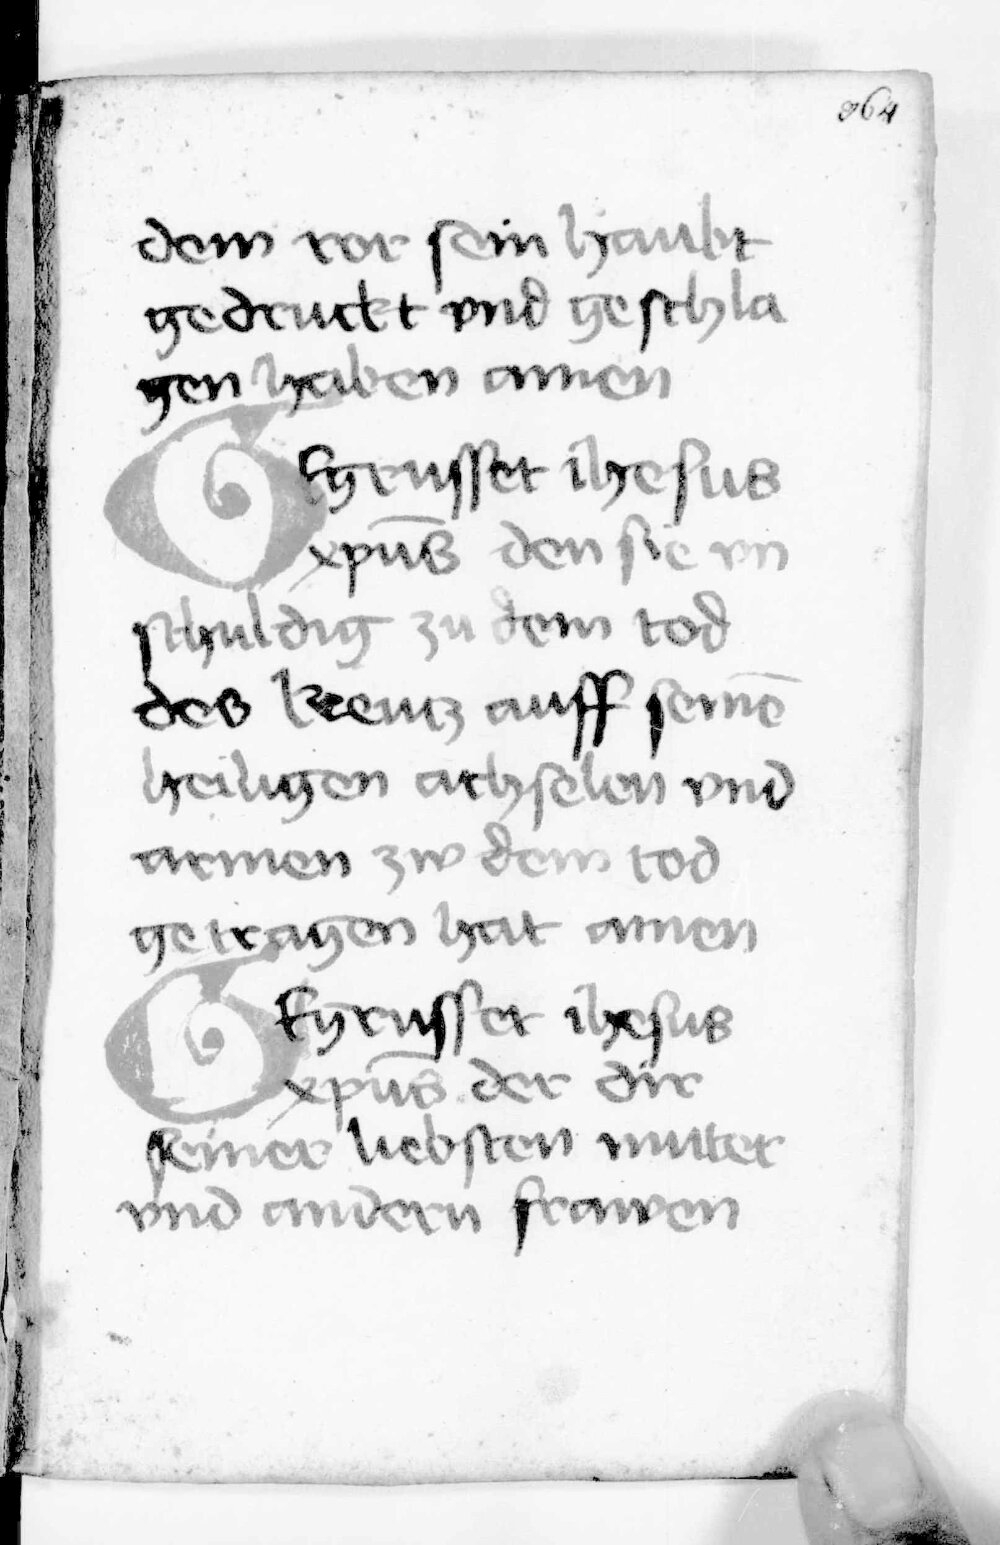 964
dem ror sein haubt
gedruckt vnd geschla
gen haben amen
Gegrusset ihesus
xpūs den sie vn
schuldig zu dem tod
des kreutz auff seinē
heiligen achselen vnd
armen zw dem tod
getragen hat amen
Gegrusset ihesus
xpūs der dir
seiner liebsten mutter
vnd andern frawen